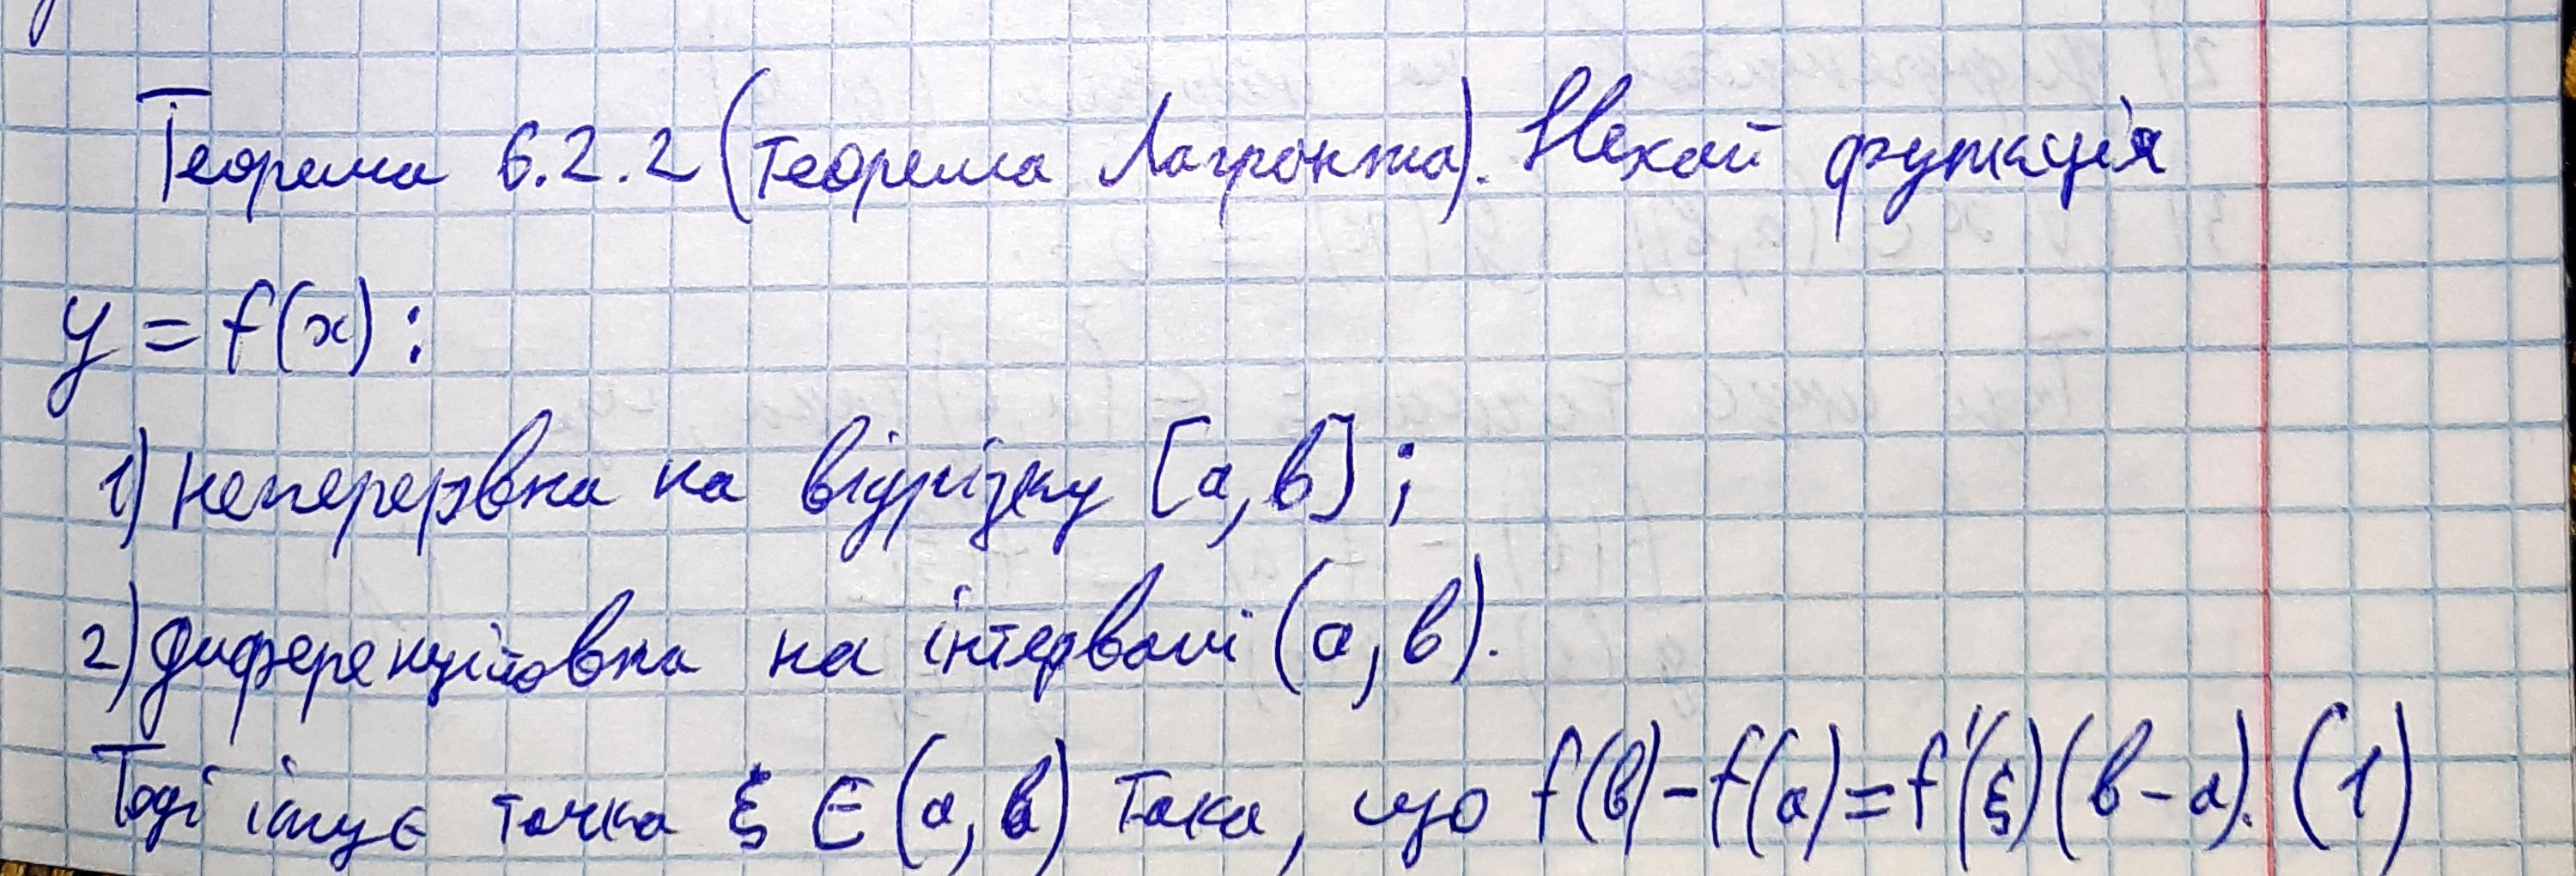 Теорема 6.2.2 (теорема Лагранжа). Нехай функція
y = f(x) :
1) неперервна на відрізку [a, b] ;
2) диференційовна на інтервалі (a, b).
Тоді існує точка ξ ∈ (a, b) така, що f(b) - f(a) = f'(ξ)(b - a). (1)